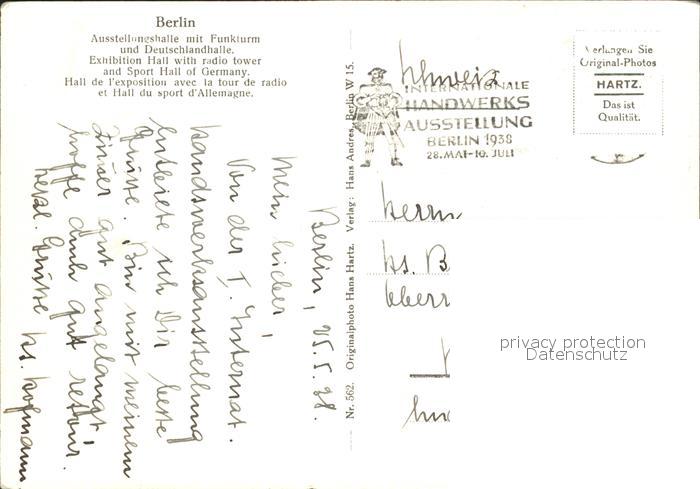 Berlin
Ausstellungshalle mit Funkturm
und Deutschlandhalle.
Exhibition Hall with radio tower
and Sport Hall of Germany.
Hall de l'exposition avec la tour de radio
et Hall du sport d'Allemagne.
Berlin, 25.5.38.
Mein Lieber,
Von der I. Internat.
Handwerksausstellung
entbiete ich Dir beste
Grüsse. Bin mit meinem
gut angelangt,
hoffe auch gut retour.
Herzl. Grüsse Hs. Hofmann
Nr. 562. Originalphoto Hans Hartz. Verlag: Hans Andres, Berlin W 15.
Schweiz
INTERNATIONALE
HANDWERKS
AUSSTELLUNG
BERLIN 1938
28. MAI-10. JULI
Verlangen Sie
Original-Photos
HARTZ.
Das ist
Qualität.
Herrn
Hs. B
privacy protection
Datenschutz